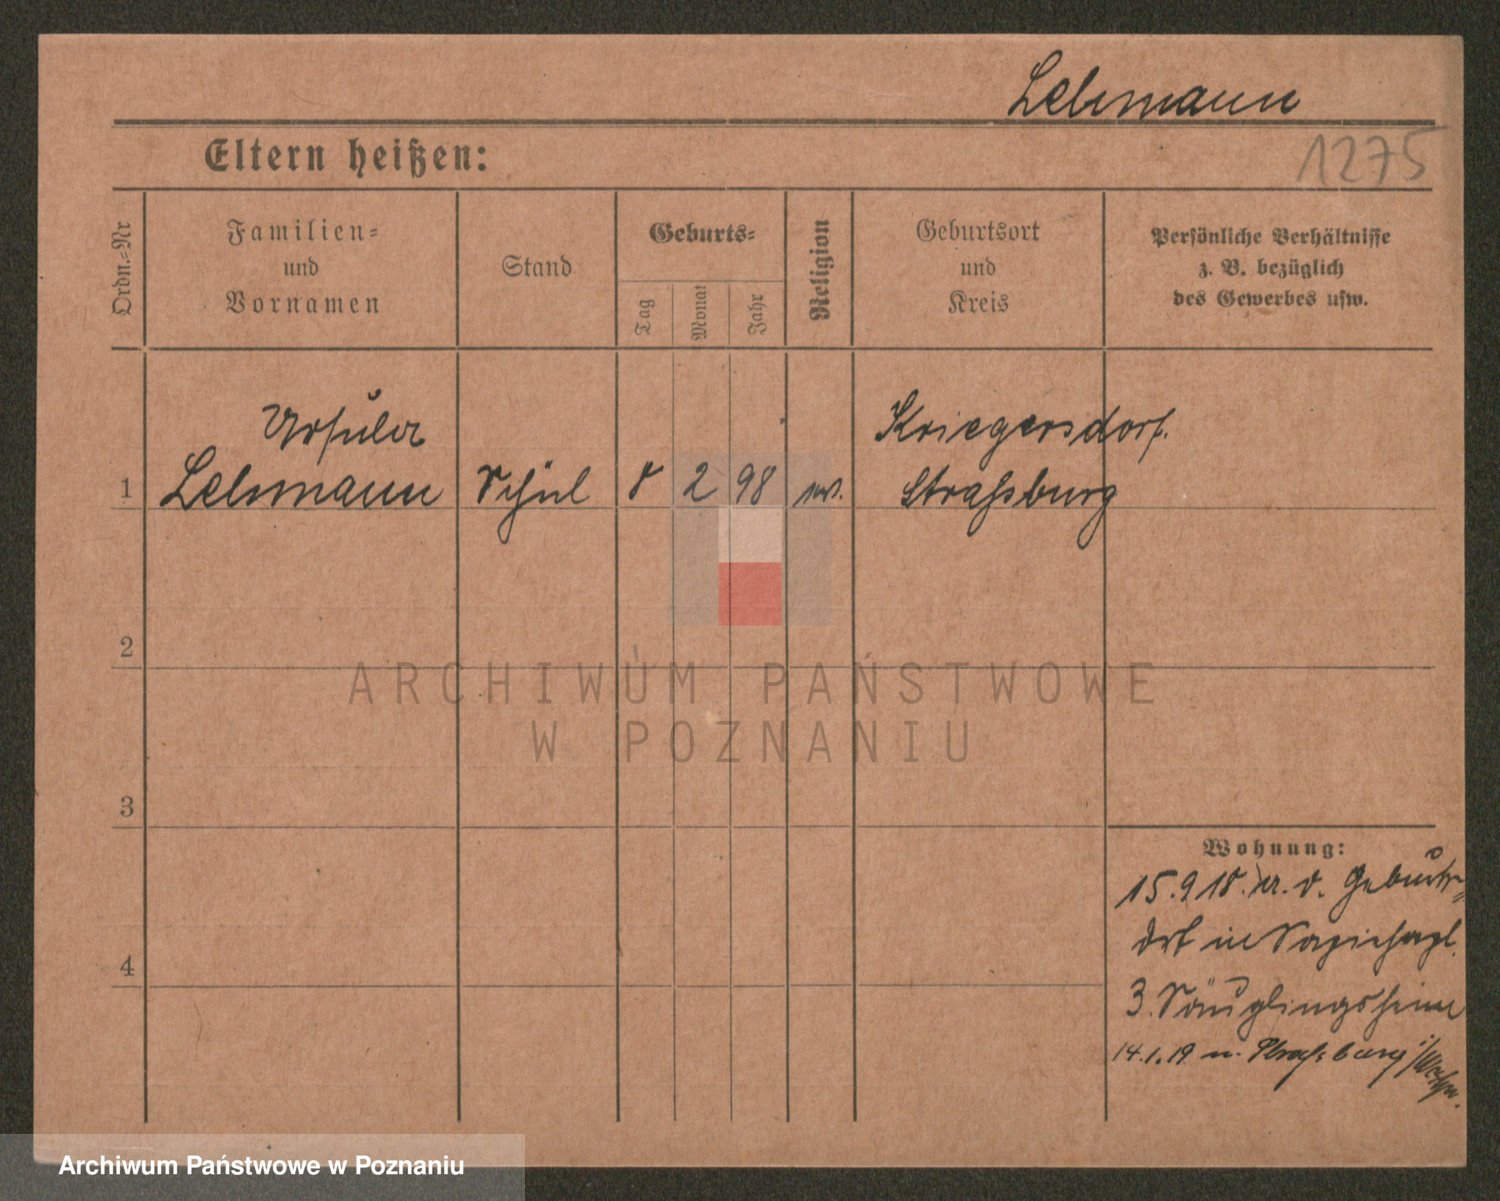 Lehmann
Eltern heißen:
1275
Ordn.-Nr
Familien-
und
Vornamen
Stand
Geburts-
Tag
Monat
Jahr
Religion
Geburtsort
und
Kreis
Persönliche Verhältnisse
z. B. bezüglich
des Gewerbes usw.
Ursula
Kriegersdorf.
1 Lehmann Schül 8 2 98 ev. Straßburg
2
3
4
ARCHIWUM PAŃSTWOWE
W POZNANIU
Wohnung:
15.9.18. v. d. Geburts-
ort in Sapiehapl.
3. Säuglingsheim
14.1.19 n. Straßburg i/Westpr.
Archiwum Państwowe w Poznaniu